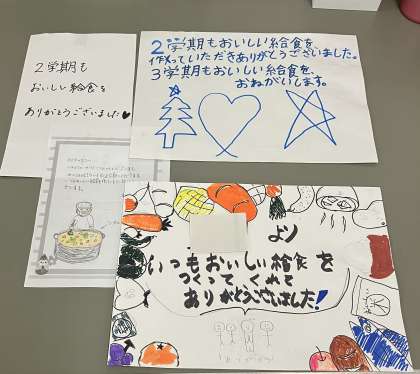 2学期も
おいしい給食を
ありがとうございました♥
2学期もおいしい給食を、
作っていただきありがとうございました。
3学期もおいしい給食を、
おねがいします。
より
いつもおいしい給食を
つくってくれて
ありがとうございました!